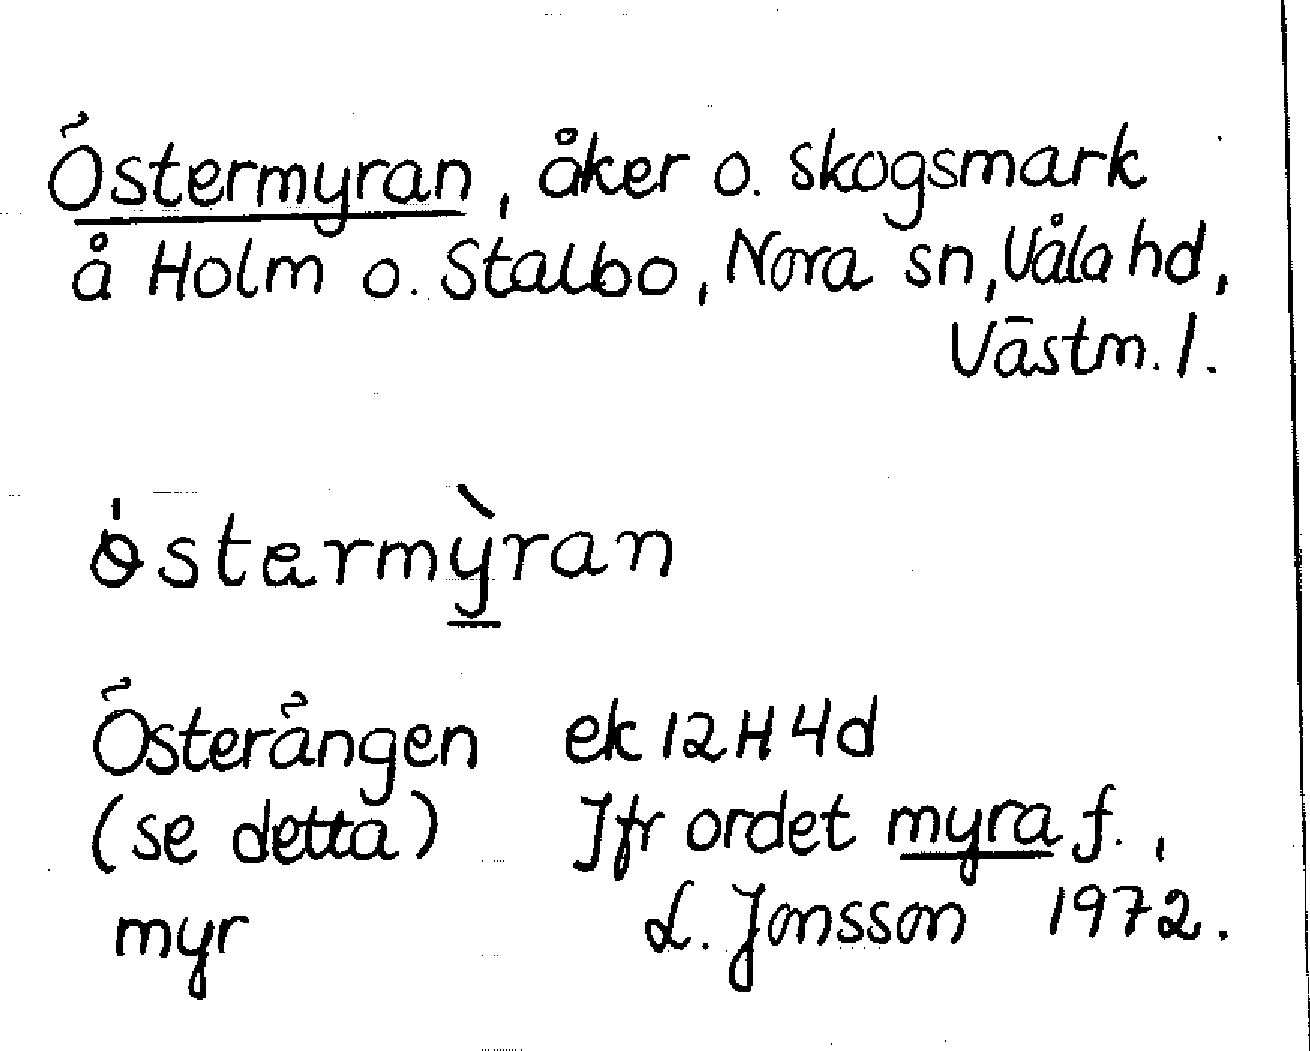 Östermyran, åker o. skogsmark
å Holm o. Stalbo, Nora sn, Våla hd,
Västm. l.
östermỳran
Österängen ek 12H4d
(se detta) Jfr ordet myra f.,
myr L. Jonsson 1972.